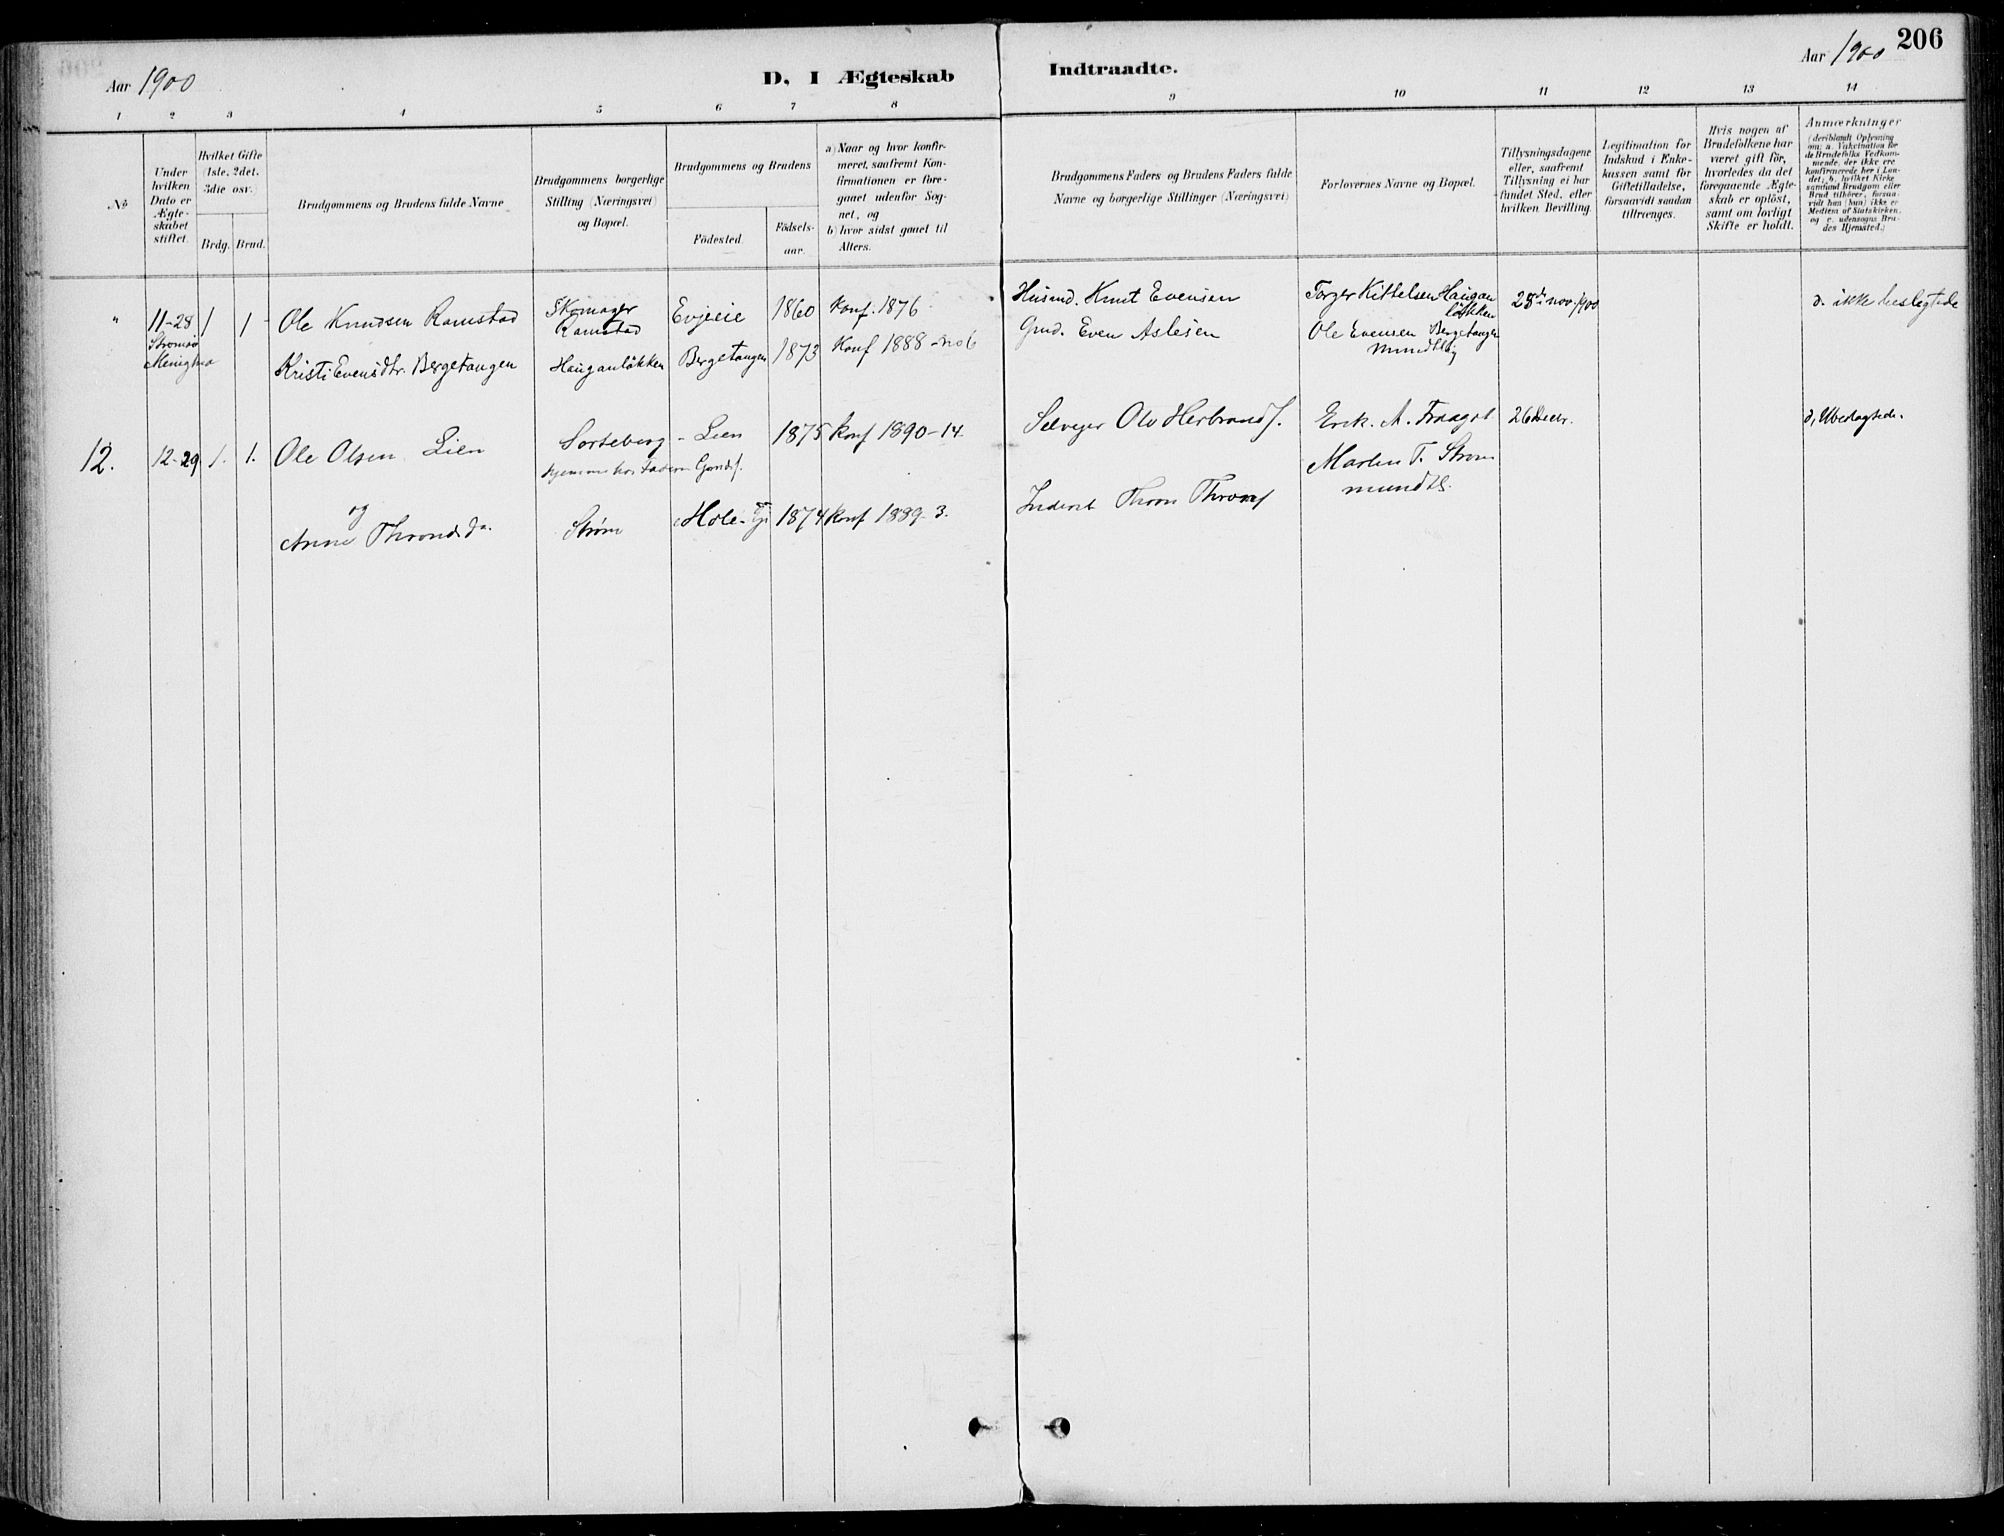 206
Aar 1900
D, I Ægteskab
Indtraadte.
Aar 1900
1 2 3 4 5 6 7 8 9 10 11 12 13 14
No
Under
hvilken
Dato er
Ægte-
skabet
stiftet.
Hvilket Gifte
(1ste, 2det.
3die osv.)
Brdg. Brud.
Brudgommens og Brudens fulde Navne
Brudgommens borgerlige
Stilling (Næringsvei)
og Bopæl.
Brudgommens og Brudens
Födested.
Födsels-
aar.
a) Naar og hvor konfir-
meret, saafremt Kon-
firmationen er fore-
gaaet udenfor Sog-
net, og
b) hvor sidst gaaet til
Alters.
Brudgommens Faders og Brudens Faders fulde
Navne og borgerlige Stillinger (Næringsvei)
Forlovernes Navne og Bopæl.
Tillysningsdagene
eller, saafremt
Tillysning ei har
fundet Sted, efter
hvilken Bevilling.
Legitimation for
Indskud i Enke-
kassen samt for
Giftetilladelse,
forsaavidt saadan
tiltrænges.
Hvis nogen af
Brudefolkene har
været gift för,
hvorledes da det
foregaaende Ægte-
skab er oplöst,
samt om lovligt
Skifte er holdt.
Anmærkninger
(deriblandt Oplysning
om: a. Vakcination for
de Brudefolks Vedkom-
mende, der ikke ere
konfirmerede her i Lan-
det; b. hvilket Kirke
samfund Brudgom eller
Brud tilhörer, forsaa-
vidt han (hun) ikke er
Medlem af Statskirken,
og c. udensogns Bru-
des Hjemsted.)
" 11-28 1 1 Ole Knudsen Ramstad Skomager Evjeeie 1860 Konf. 1876 Husmd. Knut Evensen Torger Kittelsen Haugan 28de nov. 1900 d. ikke beslegtede
Strømsø Ramstad løkken
Menighed Kristi Evensdtr. Bergetangen Hauganløkken Bergetangen 1873 Konf 1888 - no 6 Grd. Even Aslesen Ole Evensen Bergetangen
mundtlig
12. 12-29 1. 1. Ole Olsen Lien Sorteberg - Lien 1875 Konf 1890-14 Selvejer Olv Herbrands. Erik. A. Fraagot 26 Decbr. d, Ubeslegtede.
hjemme hos Faderen Gaards. Martin T. Strøm
mundtl.
og
Anne Thronds Da. Strøm Hole 1874 Konf 1889-3. Inderst Thron Throns.